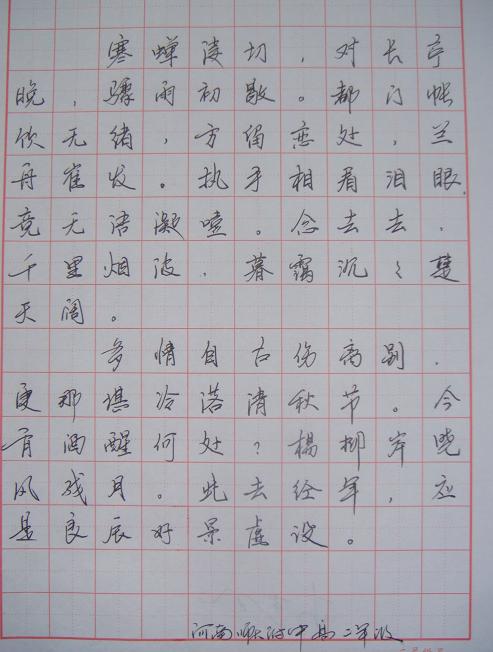 寒蝉凄切，对长亭
晚，骤雨初歇。都门帐
饮无绪，方留恋处，兰
舟催发。执手相看泪眼，
竟无语凝噎。念去去，
千里烟波，暮霭沉々楚
天阔。
多情自古伤离别，
更那堪冷落清秋节。今
宵酒醒何处？杨柳岸晓
风残月。此去经年，应
是良辰好景虚设。
河南师大附中高二年级